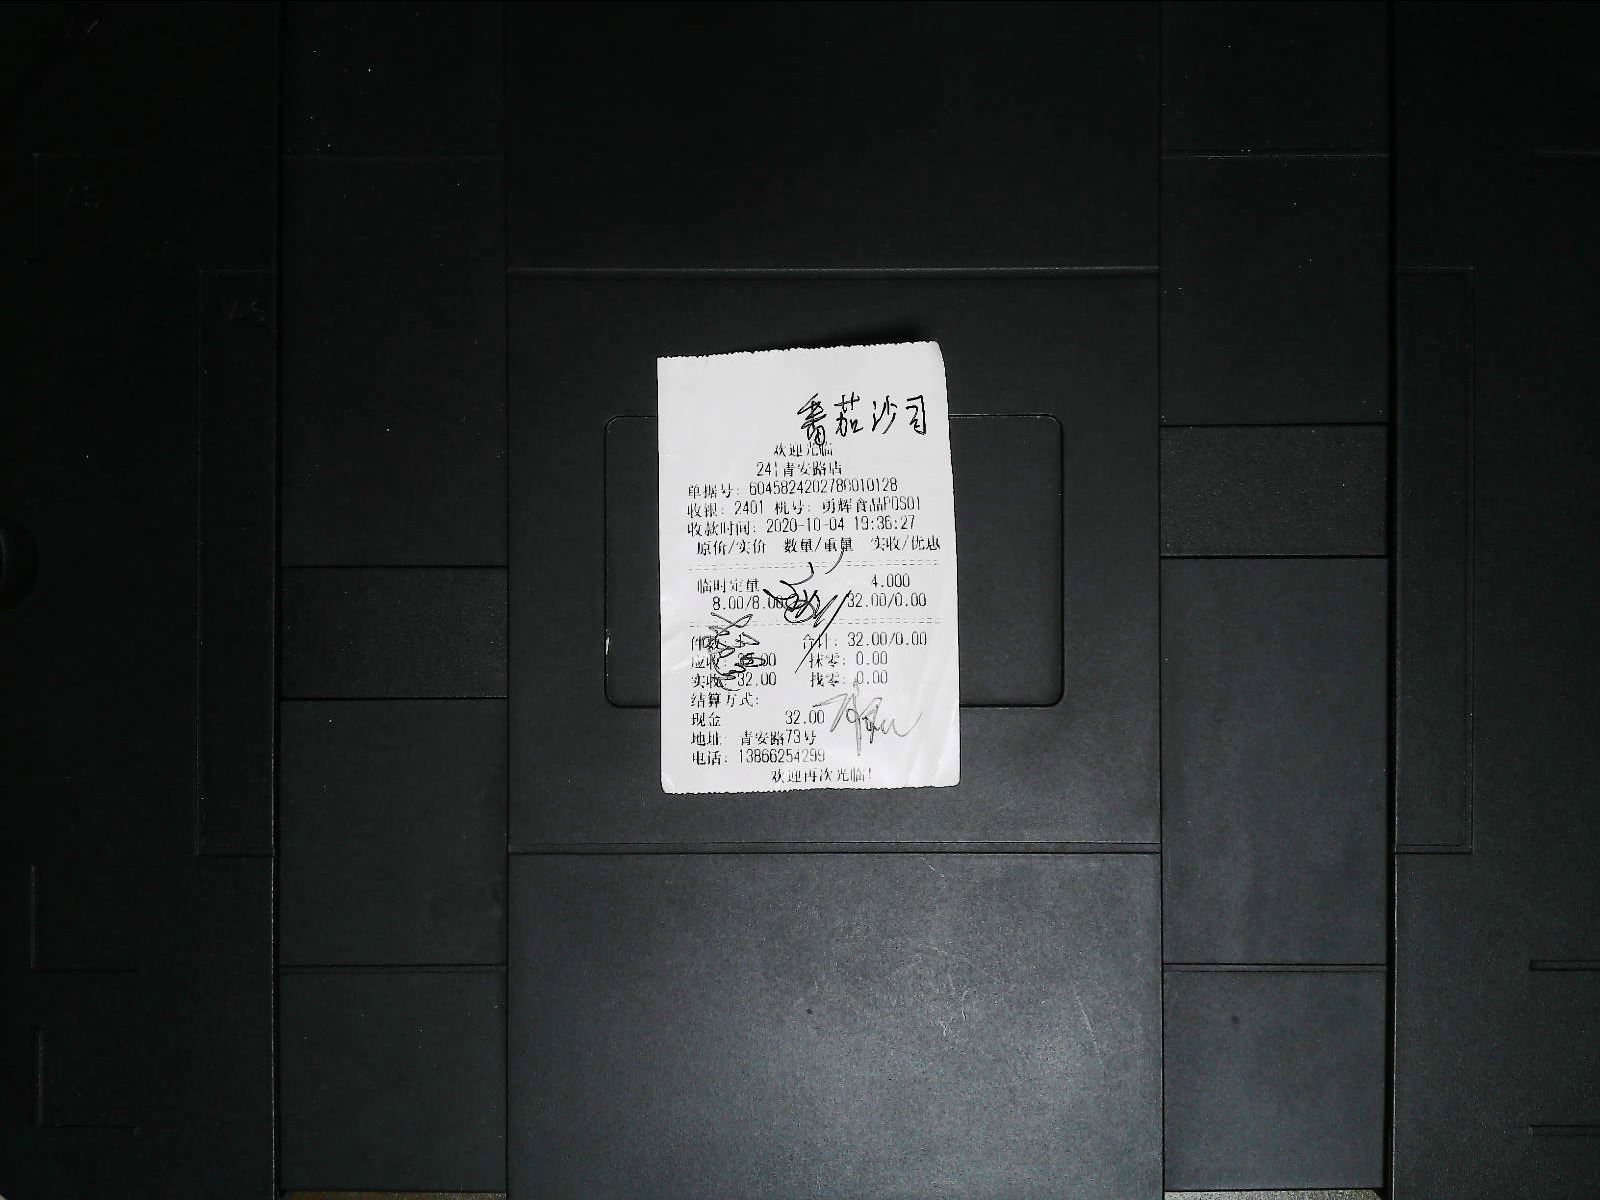 番茄沙司
欢迎光临
241青安路店
单据号: 6045824202780010128
收银: 2401 机号: 勇辉食品POS01
收款时间: 2020-10-04 19:36:27
原价/实价 数量/重量 实收/优惠
临时定量 4.000
8.00/8.00 32.00/0.00
件数: 合计: 32.00/0.00
应收: 抹零: 0.00
实收: 32.00 找零: 0.00
结算方式:
现金 32.00
地址: 青安路73号
电话: 13866254299
欢迎再次光临!